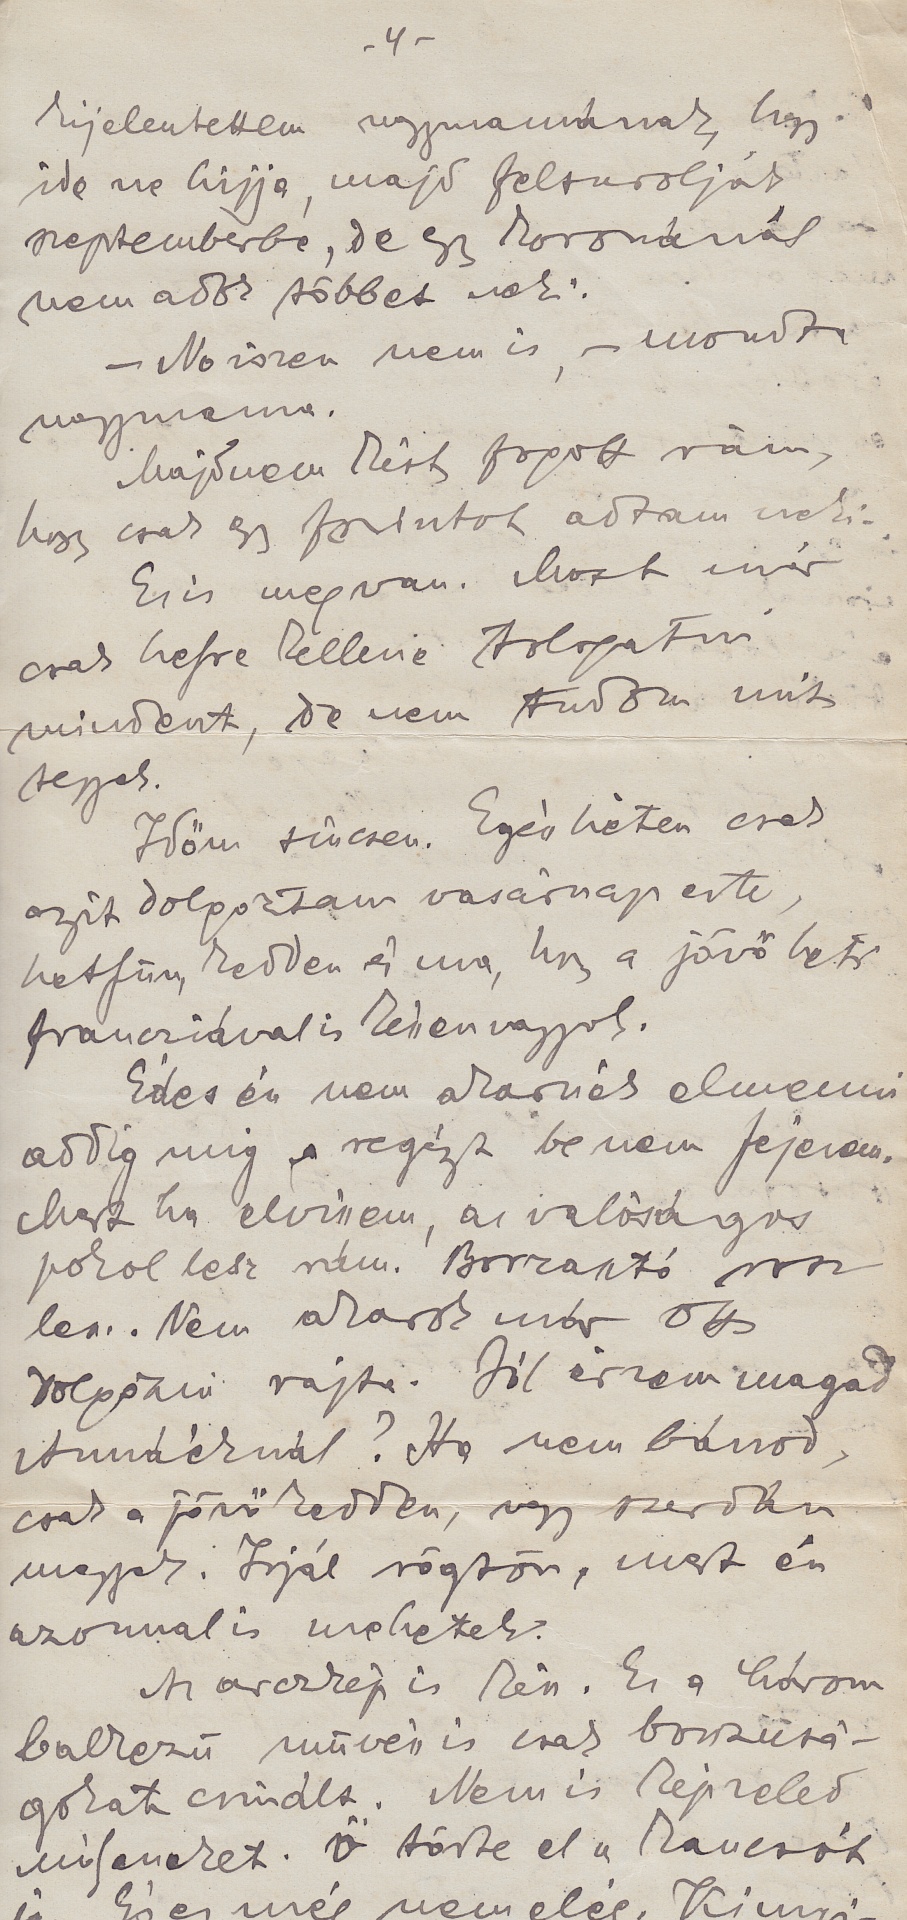 -4-
kijelentettem nagymamának, hogy
ide ne hijja, majd felsurolják
szeptemberbe, de egy koronánál
nem adok többet neki.
– No iszen nem is, – mondta
nagymama.
Majdnem kést fogott rám,
hogy csak egy forintot adtam neki.
Ez is megvan. Most már
csak helyre kellene tologatni
mindent, de nem tudom mit
tegyek.
Időm sincsen. Egész héten csak
azért dolgoztam vasárnap este,
hetfün, kedden és ma, hogy a jövő heti
francziával is készen vagyok.
Édes én nem akarnék elmenni
addig mig a regényt be nem fejezem.
Mert ha elviszem, az valóságos
pokol lesz rám. Borzasztó rosz
lesz. Nem akarok már ott
dolgozni rajta. Jól érzem magad
Annáéknál? Ha nem bánod,
csak a jövő kedden, vagy szerdán
megyek. Irjál rögtön, mert én
azonnal is mehetek.
Az arczkép is kész. Ez a három
balkezü müvész is csak boszusá-
gokat csinált. Nem is képzeled
milyeneket. Ő törte el a kancsót
is. És ez még nem elég.